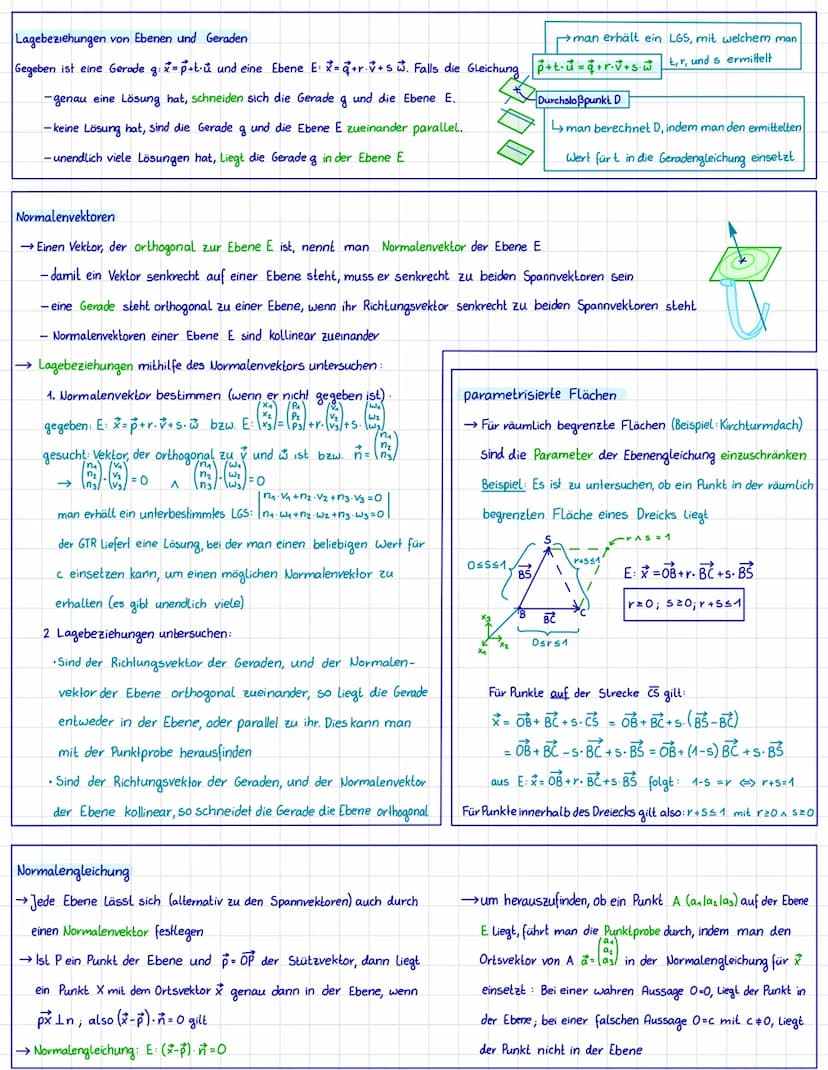 Lagebeziehungen von Ebenen und Geraden
Gegeben ist eine Gerade g: x⃗=p⃗+t·u⃗ und eine Ebene E: x⃗=q⃗+r·v⃗+s w⃗. Falls die Gleichung p⃗+t·u⃗=q⃗+r·v⃗+s·w⃗
→man erhält ein LGS, mit welchem man
t, r, und s ermittelt
-genau eine Lösung hat, schneiden sich die Gerade g und die Ebene E.
Durchstoßpunkt D
-keine Lösung hat, sind die Gerade g und die Ebene E zueinander parallel.
↳man berechnet D, indem man den ermittelten
Wert für t in die Geradengleichung einsetzt
-unendlich viele Lösungen hat, liegt die Gerade g in der Ebene E
Normalenvektoren
→Einen Vektor, der orthogonal zur Ebene E ist, nennt man Normalenvektor der Ebene E
-damit ein Vektor senkrecht auf einer Ebene steht, muss er senkrecht zu beiden Spannvektoren sein
-eine Gerade steht orthogonal zu einer Ebene, wenn ihr Richtungsvektor senkrecht zu beiden Spannvektoren steht
- Normalenvektoren einer Ebene E sind kollinear zueinander
→ Lagebeziehungen mithilfe des Normalenvektors untersuchen:
1. Normalenvektor bestimmen (wenn er nicht gegeben ist).
gegeben: E: x⃗=p⃗+r·v⃗+s·w⃗ bzw. E: (x₁ x₂ x₃)=(p₁ p₂ p₃)+r·(v₁ v₂ v₃)+s·(w₁ w₂ w₃)
gesucht: Vektor, der orthogonal zu v⃗ und w⃗ ist bzw. n⃗=(n₁ n₂ n₃)
→ (n₁ n₂ n₃)·(v₁ v₂ v₃)=0 ∧ (n₁ n₂ n₃)·(w₁ w₂ w₃)=0
man erhält ein unterbestimmtes LGS: |n₁·v₁+n₂·v₂+n₃·v₃=0|
|n₁·w₁+n₂·w₂+n₃·w₃=0|
der GTR liefert eine Lösung, bei der man einen beliebigen Wert für
c einsetzen kann, um einen möglichen Normalenvektor zu
erhalten (es gibt unendlich viele)
2 Lagebeziehungen untersuchen:
·Sind der Richtungsvektor der Geraden, und der Normalen-
vektor der Ebene orthogonal zueinander, so liegt die Gerade
entweder in der Ebene, oder parallel zu ihr. Dies kann man
mit der Punktprobe herausfinden
· Sind der Richtungsvektor der Geraden, und der Normalenvektor
der Ebene kollinear, so schneidet die Gerade die Ebene orthogonal
parametrisierte Flächen
→ Für räumlich begrenzte Flächen (Beispiel: Kirchturmdach)
sind die Parameter der Ebenengleichung einzuschränken
Beispiel: Es ist zu untersuchen, ob ein Punkt in der räumlich
begrenzten Fläche eines Dreiecks liegt
S
r∧s=1
0≤s≤1
BS⃗
r+s≤1
E: x⃗=OB⃗+r·BC⃗+s·BS⃗
r≥0; s≥0; r+s≤1
B
BC⃗
C
x₃
x₂
x₁
0≤r≤1
Für Punkte auf der Strecke CS gilt:
x⃗= OB⃗+BC⃗+s·CS⃗ = OB⃗+BC⃗+s·(BS⃗-BC⃗)
= OB⃗+BC⃗-s·BC⃗+s·BS⃗=OB⃗+(1-s) BC⃗+s·BS⃗
aus E: x⃗=OB⃗+r·BC⃗+s·BS⃗ folgt: 1-s=r ⇔ r+s=1
Für Punkte innerhalb des Dreiecks gilt also: r+s≤1 mit r≥0 ∧ s≥0
Normalengleichung
→Jede Ebene lässt sich (alternativ zu den Spannvektoren) auch durch
einen Normalenvektor festlegen
→Ist P ein Punkt der Ebene und p⃗=OP⃗ der Stützvektor, dann liegt
ein Punkt X mit dem Ortsvektor x⃗ genau dann in der Ebene, wenn
px⃗⊥n; also (x⃗-p⃗)·n⃗=0 gilt
→ Normalengleichung: E: (x⃗-p⃗)·n⃗=0
→um herauszufinden, ob ein Punkt A (a₁|a₂|a₃) auf der Ebene
E liegt, führt man die Punktprobe durch, indem man den
Ortsvektor von A a⃗=(a₁ a₂ a₃) in der Normalengleichung für x⃗
einsetzt: Bei einer wahren Aussage 0=0, liegt der Punkt in
der Ebene; bei einer falschen Aussage 0=c mit c≠0, liegt
der Punkt nicht in der Ebene